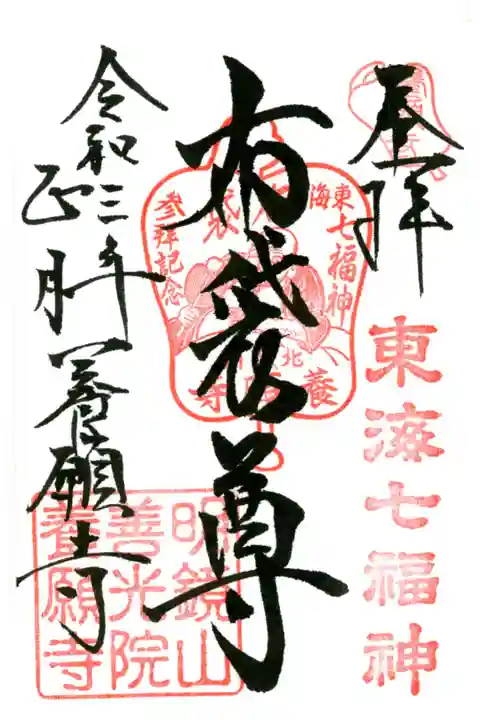 奉拝
東海七福神
布袋尊
東海
七福神
参拝記念
令和三年
正月
養願寺
明鏡山
善光院
養願寺